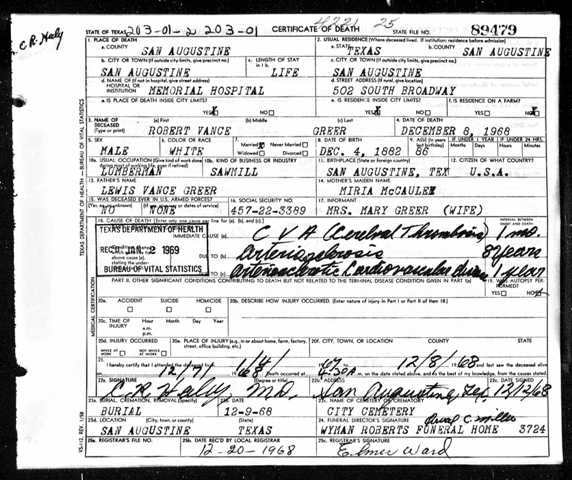 STATE OF TEXAS 203-01-2 203-01 CERTIFICATE OF DEATH STATE FILE NO. 89479
C.R. Haley
1. PLACE OF DEATH 2. USUAL RESIDENCE (Where deceased lived. If institution: residence before admission)
a. COUNTY SAN AUGUSTINE a. STATE TEXAS b. COUNTY SAN AUGUSTINE
b. CITY OR TOWN (If outside city limits, give precinct no.) c. LENGTH OF STAY c. CITY OR TOWN (If outside city limits, give precinct no.)
SAN AUGUSTINE LIFE SAN AUGUSTINE
d. NAME OF (If not in hospital, give street address) HOSPITAL OR INSTITUTION MEMORIAL HOSPITAL d. STREET ADDRESS (If rural, give location) 502 SOUTH BROADWAY
e. IS PLACE OF DEATH INSIDE CITY LIMITS? YES NO e. IS RESIDENCE INSIDE CITY LIMITS? YES NO f. IS RESIDENCE ON A FARM? YES NO
3. NAME OF DECEASED (Type or print) (a) First (b) Middle (c) Last 4. DATE OF DEATH
ROBERT VANCE GREER DECEMBER 8, 1968
5. SEX 6. COLOR OR RACE 7. Married Never Married Widowed Divorced 8. DATE OF BIRTH 9. AGE IF UNDER 1 YEAR IF UNDER 24 HRS.
MALE WHITE DEC. 4, 1882 86 Months Days Hours Min.
10a. USUAL OCCUPATION (Give kind of work done 10b. KIND OF BUSINESS OR INDUSTRY 11. BIRTHPLACE (State or foreign country) 12. CITIZEN OF WHAT COUNTRY?
LUMBERMAN SAWMILL SAN AUGUSTINE, TEX U.S.A.
13. FATHER'S NAME 14. MOTHER'S MAIDEN NAME
LEWIS VANCE GREER MIRIA McCAULEY
15. WAS DECEASED EVER IN U.S. ARMED FORCES? 16. SOCIAL SECURITY NO. 17. INFORMANT
NO NONE 457-22-3389 MRS. MARY GREER (WIFE)
18. CAUSE OF DEATH (Enter only one cause per line for (a), (b), and (c).) INTERVAL BETWEEN ONSET AND DEATH
TEXAS DEPARTMENT OF HEALTH CVA (Cerebral Thrombosis) 1 mo.
REC'D JAN 2 1969 DUE TO Arteriosclerosis 8 years
BUREAU OF VITAL STATISTICS DUE TO Arteriosclerotic Cardiovascular 1 year
PART II. OTHER SIGNIFICANT CONDITIONS CONTRIBUTING TO DEATH BUT NOT RELATED TO THE TERMINAL DISEASE CONDITION GIVEN IN PART I(a) 19. WAS AUTOPSY PERFORMED? YES NO
20a. ACCIDENT SUICIDE HOMICIDE 20b. DESCRIBE HOW INJURY OCCURRED. (Enter nature of injury in Part I or Part II of item 18.)
20c. TIME OF INJURY Hour Month Day Year a.m. p.m.
20d. INJURY OCCURRED 20e. PLACE OF INJURY (e.g., in or about home, farm, factory, street, office building, etc.) 20f. CITY, TOWN, OR LOCATION COUNTY STATE
21. I hereby certify that I attended the deceased from 12/8/68
22a. SIGNATURE (Degree or title) 22b. ADDRESS 22c. DATE SIGNED
C R Haley M.D. San Augustine, Tex 12/12/68
23a. BURIAL, CREMATION, REMOVAL (Specify) 23b. DATE 23c. NAME OF CEMETERY OR CREMATORY
BURIAL 12-9-68 CITY CEMETERY
23d. LOCATION (City, town, or county) (State) 24. FUNERAL DIRECTOR'S SIGNATURE
SAN AUGUSTINE TEXAS WYMAN ROBERTS FUNERAL HOME 3724
25a. REGISTRAR'S FILE NO. 25b. DATE REC'D BY LOCAL REGISTRAR 25c. REGISTRAR'S SIGNATURE
12-20-1968 Elmer Ward
TEXAS DEPARTMENT OF HEALTH - BUREAU OF VITAL STATISTICS
MEDICAL CERTIFICATION